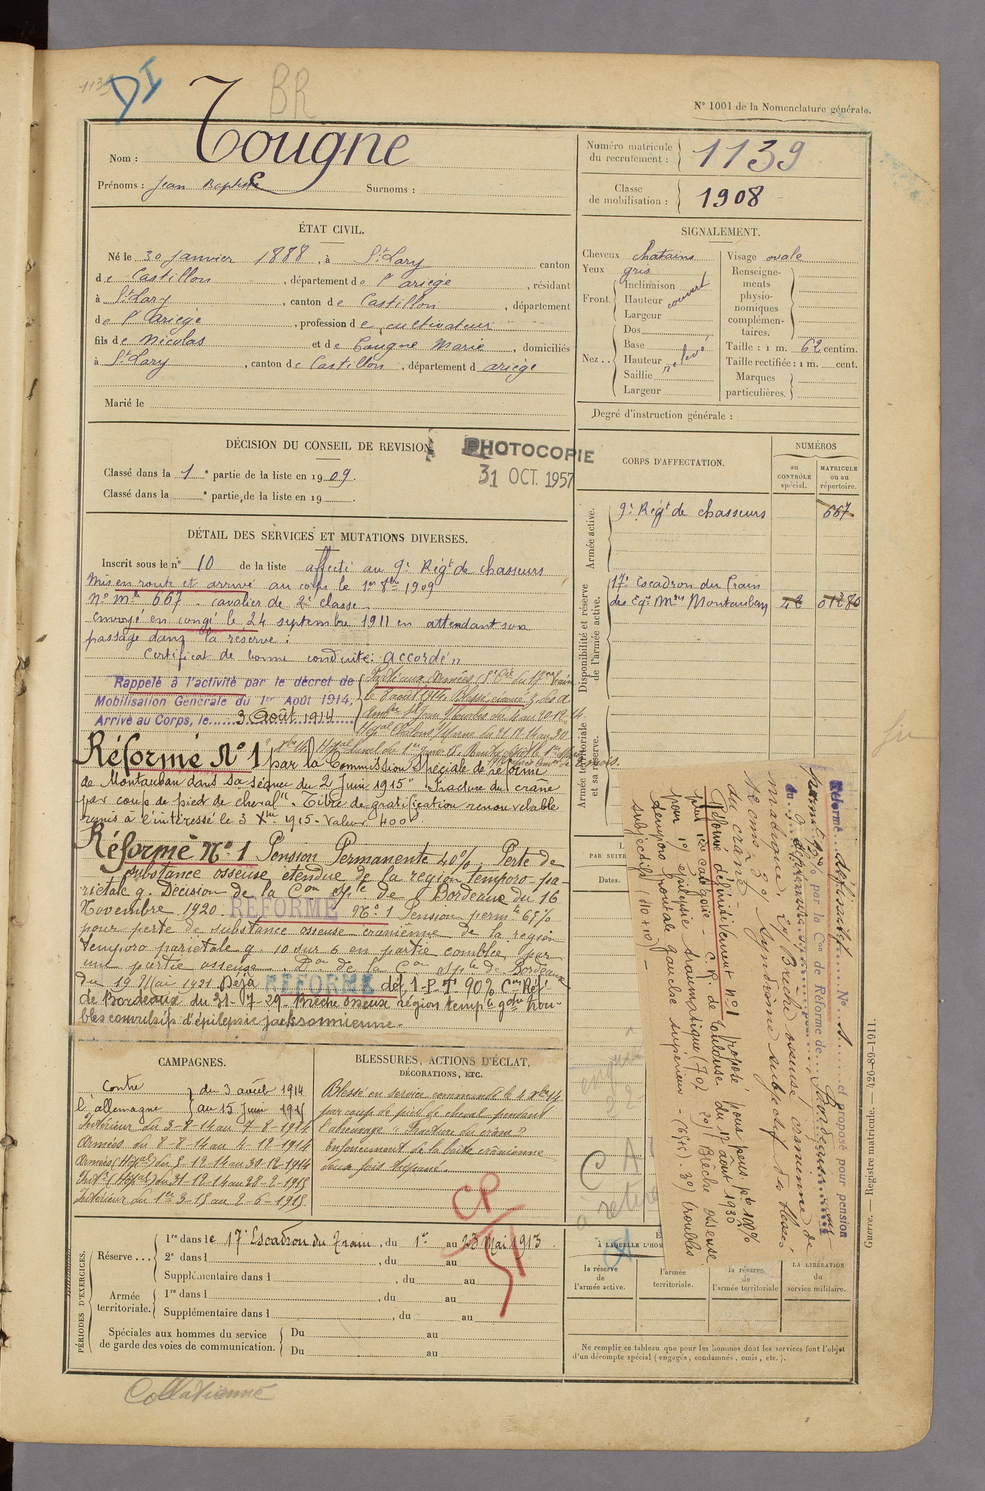 1139
DI
BR
N° 1001 de la Nomenclature générale.
Nom : Tougne
Prénoms : Jean Baptiste Surnoms :
Numéro matricule du recrutement : 1139
Classe de mobilisation : 1908
ÉTAT CIVIL.
Né le 30 janvier 1888, à St Lary canton
de Castillon, département de l'Ariège, résidant
à St Lary, canton de Castillon, département
de l'Ariège, profession de cultivateur
fils de Nicolas et de Tougne Marie, domiciliés
à St Lary, canton de Castillon, département d ariège
Marié le
SIGNALEMENT.
Cheveux chatains
Yeux gris
Front. Inclinaison
Hauteur couvert
Largeur
Nez.. Dos
Base
Hauteur relevé
Saillie
Largeur
Visage ovale
Renseignements physionomiques complémentaires.
Taille : 1 m. 62 centim.
Taille rectifiée : 1 m. cent.
Marques particulières.
Degré d'instruction générale :
DÉCISION DU CONSEIL DE REVISION
Classé dans la 1e partie de la liste en 1909.
Classé dans la e partie de la liste en 19
PHOTOCOPIE
31 OCT. 1957
CORPS D'AFFECTATION.
NUMÉROS
au CONTRÔLE spécial.
MATRICULE ou au répertoire.
Armée active.
9e Régt de chasseurs 667
Disponibilité et réserve de l'armée active.
17e Escadron du Train
des Eqes Mres Montauban
Armée territoriale et sa réserve.
DÉTAIL DES SERVICES ET MUTATIONS DIVERSES.
Inscrit sous le n° 10 de la liste affecté au 9e Régt de chasseurs
Mis en route et arrivé au corps le 1er 8bre 1909
N° Mle 667. cavalier de 2e classe
Envoyé en congé le 24 septembre 1911 en attendant son
passage dans la réserve :
Certificat de bonne conduite : accordé
Rappelé à l'activité par le décret de
Mobilisation Générale du 1er Août 1914,
Arrivé au Corps, le 3 Août 1914
Réformé N° 1 par la Commission Spéciale de réforme
de Montauban dans sa séance du 2 Juin 1915 "Fracture du crâne
par coup de pied de cheval". Titre de gratification renouvelable
remis à l'intéressé le 3 Xbre 1915 - Valeur 400
Réformé N° 1 Pension Permanente 40% Perte de
substance osseuse étendue de la région temporo-pa-
riétale g. Décision de la Con Sple de Bordeaux du 16
Novembre 1920. RÉFORMÉ N° 1 Pension permte 65%
pour perte de substance osseuse crânienne de la région
temporo pariétale g. 10 sur 6 en partie comblée par
une partie osseuse. Don de la Con Sple de Bordeaux
du 19 Mai 1921 Déjà REFORMÉ déf 1-P-T 90% Con Réf
de Bordeaux du 31-17-29 Brèche osseuse région temple gche trou-
bles convulsifs d'épilepsie jacksonnienne.
Réforme définitive N° 1 et proposé pour pension
permanente % par la Con de Réforme de
Brèche osseuse crânienne de
Syndrome subjectif des blessés
du crâne
Réformé définitivement n°1 proposé pour pens. pte 100%
C.R. de Toulouse du 12 août 1935
pour 1°) épilepsie traumatique (70) 2°) Brèche osseuse
temporo frontale gauche supérieure 3°) troubles
subjectifs (10+10)
CAMPAGNES.
Contre l'allemagne du 3 août 1914
au 15 Juin 1915
Intérieur du 3-8-14 au 7-8-1914
Armées du 8-8-14 au 4-12-1914
Armées (Hôpal) du 5-12-14 au 30-12-1914
Intr (Hôpal) du 31-12-14 au 28-2-1915
Intérieur du 1er-3-15 au 2-6-1915
BLESSURES, ACTIONS D'ÉCLAT,
DÉCORATIONS, ETC.
Blessé en service commandé le 4 Xbre 14
par coup de pied de cheval pendant
l'abreuvage "Fracture du crâne"
Enfoncement de la boite crânienne
deux fois trépané.
CP
51
PAR SUITE
Dates.
PÉRIODES D'EXERCICES.
Réserve... 1re dans le 17e Escadron du Train, du 1er au 23 Mai 1913
2e dans l , du au
Supplémentaire dans l , du au
Armée territoriale. 1re dans l , du au
Supplémentaire dans l , du au
Spéciales aux hommes du service de garde des voies de communication. Du au
Du au
À LAQUELLE L'HOM
la réserve de l'armée active.
l'armée territoriale.
la réserve de l'armée territoriale
LA LIBÉRATION du service militaire.
Ne remplir ce tableau que pour les hommes dont les services font l'objet
d'un décompte spécial (engagés, condamnés, omis, etc.).
Guerre. — Registre matricule. — 426-89-1911.
Collationné